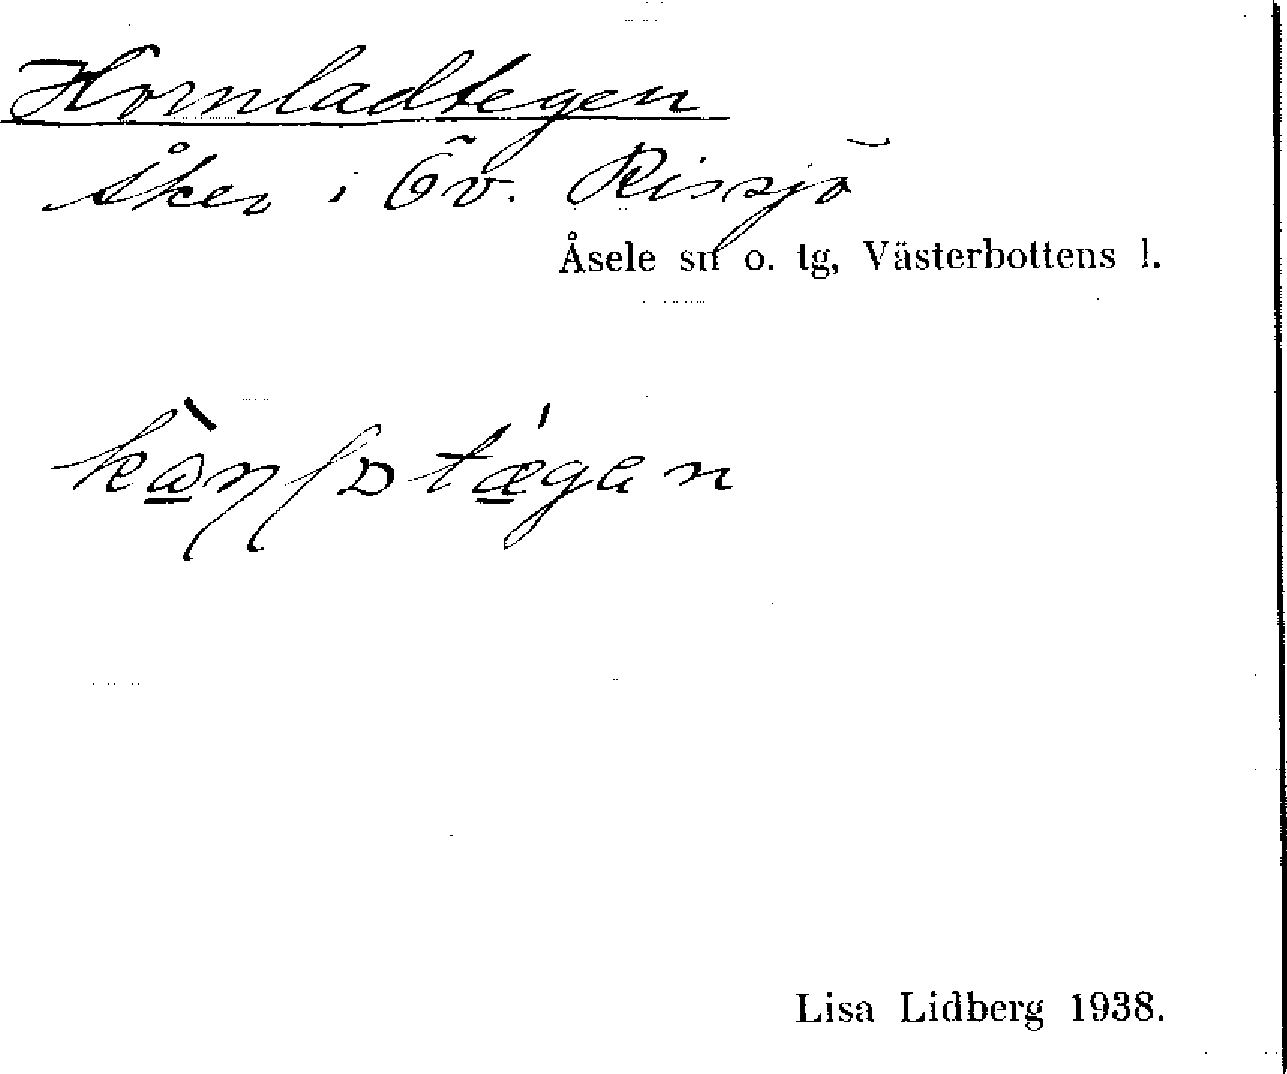 Kornladtegen
åker i Öv. Rissjö
Åsele sn o. tg, Västerbottens l.
Lisa Lidberg 1938.